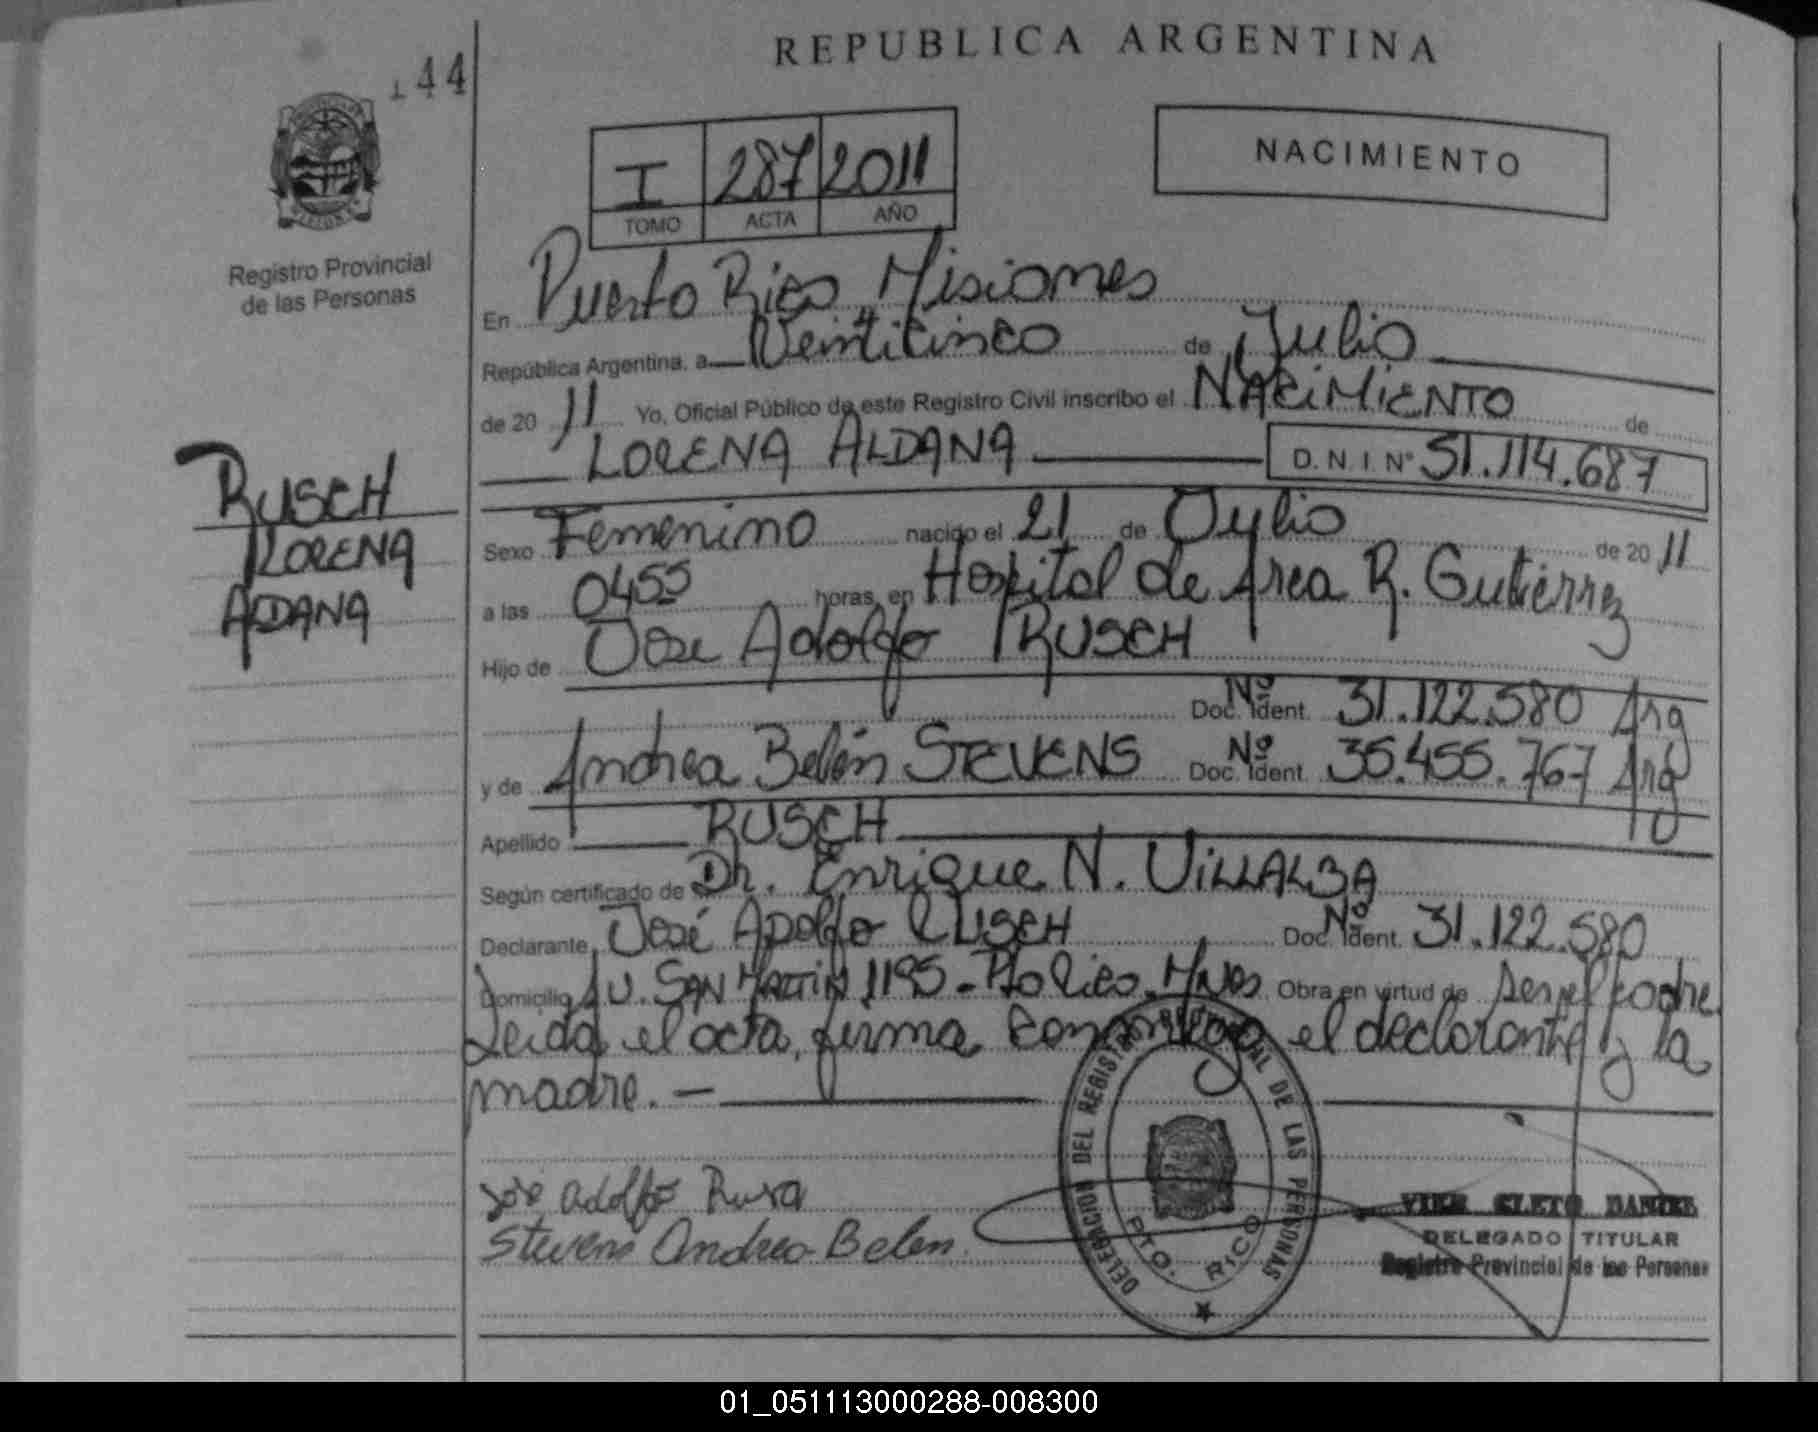 REPUBLICA ARGENTINA
144
I 287 2011
TOMO ACTA AÑO
NACIMIENTO
Registro Provincial
de las Personas
En Puerto Rico, Misiones
República Argentina, a Veinticinco de Julio
de 20 11 Yo, Oficial Público de este Registro Civil inscribo el NACIMIENTO de
LORENA ALDANA D.N.I. Nº 51.114.687
RUSCH
LORENA
ALDANA
Sexo Femenino nacido el 21 de Julio de 20 11
a las 0455 horas, en Hospital de Area R. Gutiérrez
Hijo de Jose Adolfo RUSCH
Doc. Ident. Nº 31.122.580 Arg
y de Andrea Belén STEVENS Doc. Ident. Nº 35.455.767 Arg
Apellido RUSCH
Según certificado de Dr. Enrique N. VILLALBA
Declarante José Adolfo RUSCH Doc. Ident. Nº 31.122.580
Domicilio Av. SAN MARTIN 1195 - Pto Rico. Mnes Obra en virtud de ser el padre.
Leida el acta, firma conmigo el declarante y la
madre. —
DELEGACION DEL REGISTRO PROVINCIAL DE LAS PERSONAS
PTO. RICO
Jose adolfo
Stevens Andrea Belen.
CLETO DANIEL
DELEGADO TITULAR
Registro Provincial de las Personas
01_051113000288-008300